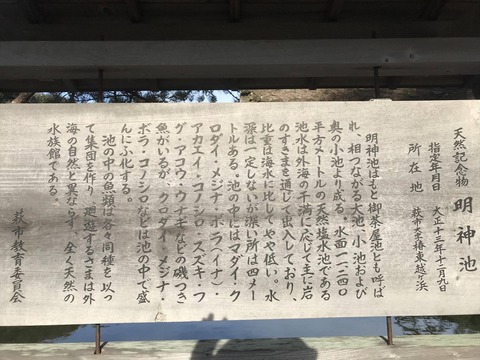 天然記念物 明神池
指定年月日 大正十三年十二月九日
所在地 萩市大字椿東越ヶ浜
明神池はもと御茶屋池とも呼ば
れ、相つながる大池、小池および
奥の小池より成る。水面一一二四〇
平方メートルの天然塩水池である
池水は外海の干満に応じて主に岩
のすきまを通じて出入しており、
比重は海水に比してやや低い。水
深は一定しないが深い所は四メー
トルある。池の中にはマダイ・ク
ロダイ・メジナ・ボラ(イナ)・
アカエイ・コノシロ・スズキ・フ
グ・アコウ・ウナギなどの磯つき
魚がいるが、クロダイ・メジナ・
ボラ・コノシロなどは池の中で盛
んにふ化する。
池の中の魚類は各々同種を以っ
て集団を作り、廻遊するさまは外
海の自然と異ならず、全く天然の
水族館である。
萩市教育委員会